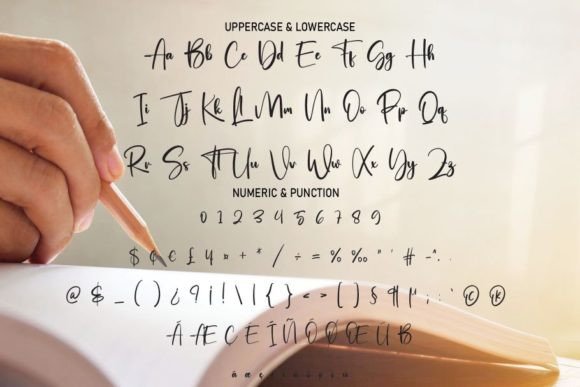 UPPERCASE & LOWERCASE
Aa Bb Cc Dd Ee Ff Gg Hh
Ii Jj Kk Ll Mm Nn Oo Pp Qq
Rr Ss Tt Uu Vv Ww Xx Yy Zz
NUMERIC & PUNCTION
0 1 2 3 4 5 6 7 8 9
$ ¢ € £ ¥ ¤ + * / ÷ = % ‰ " ' # -^. .
@ $ _ ( ) ¿ ? ¡ ! \ | { } < > [ ] § ¶ ; : ' © ®
Á Æ Ç É Í Ñ Ó Ø Œ Ú ß